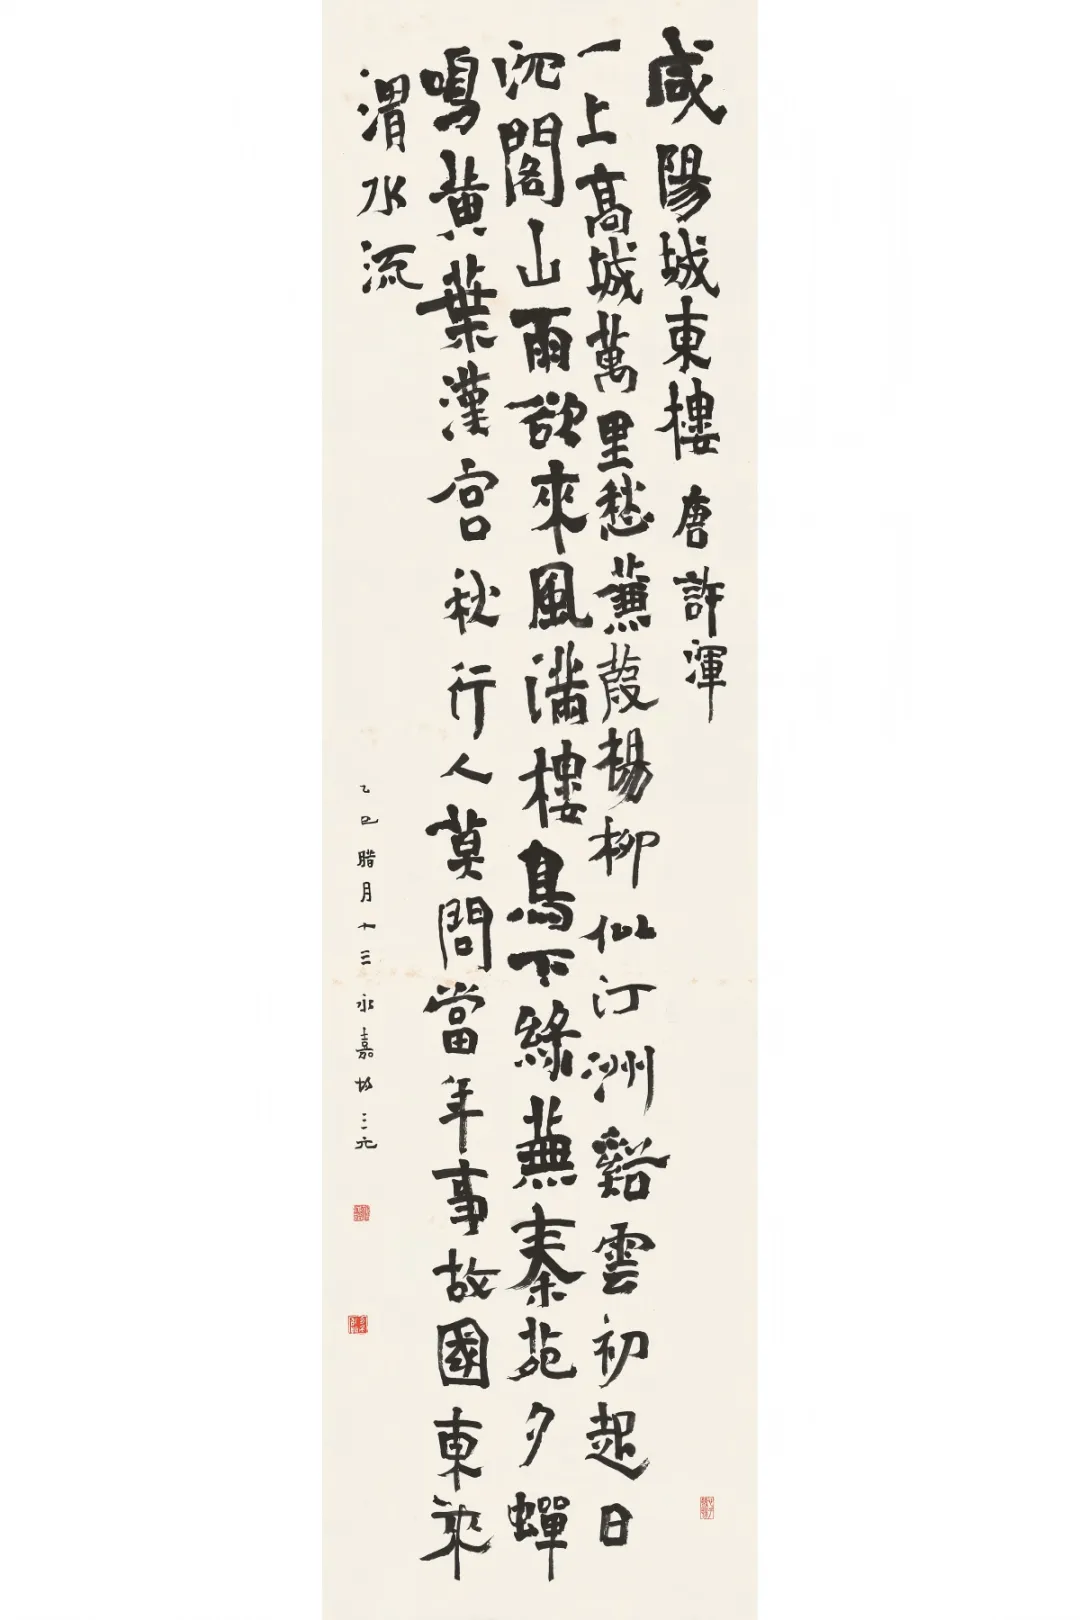 咸陽城東樓 唐許渾
一上高城萬里愁蒹葭楊柳似汀洲谿雲初起日
沉閣山雨欲來風滿樓鳥下綠蕪秦苑夕蟬
鳴黃葉漢宮秋行人莫問當年事故國東來
渭水流
乙巳腊月十三 永嘉 三元